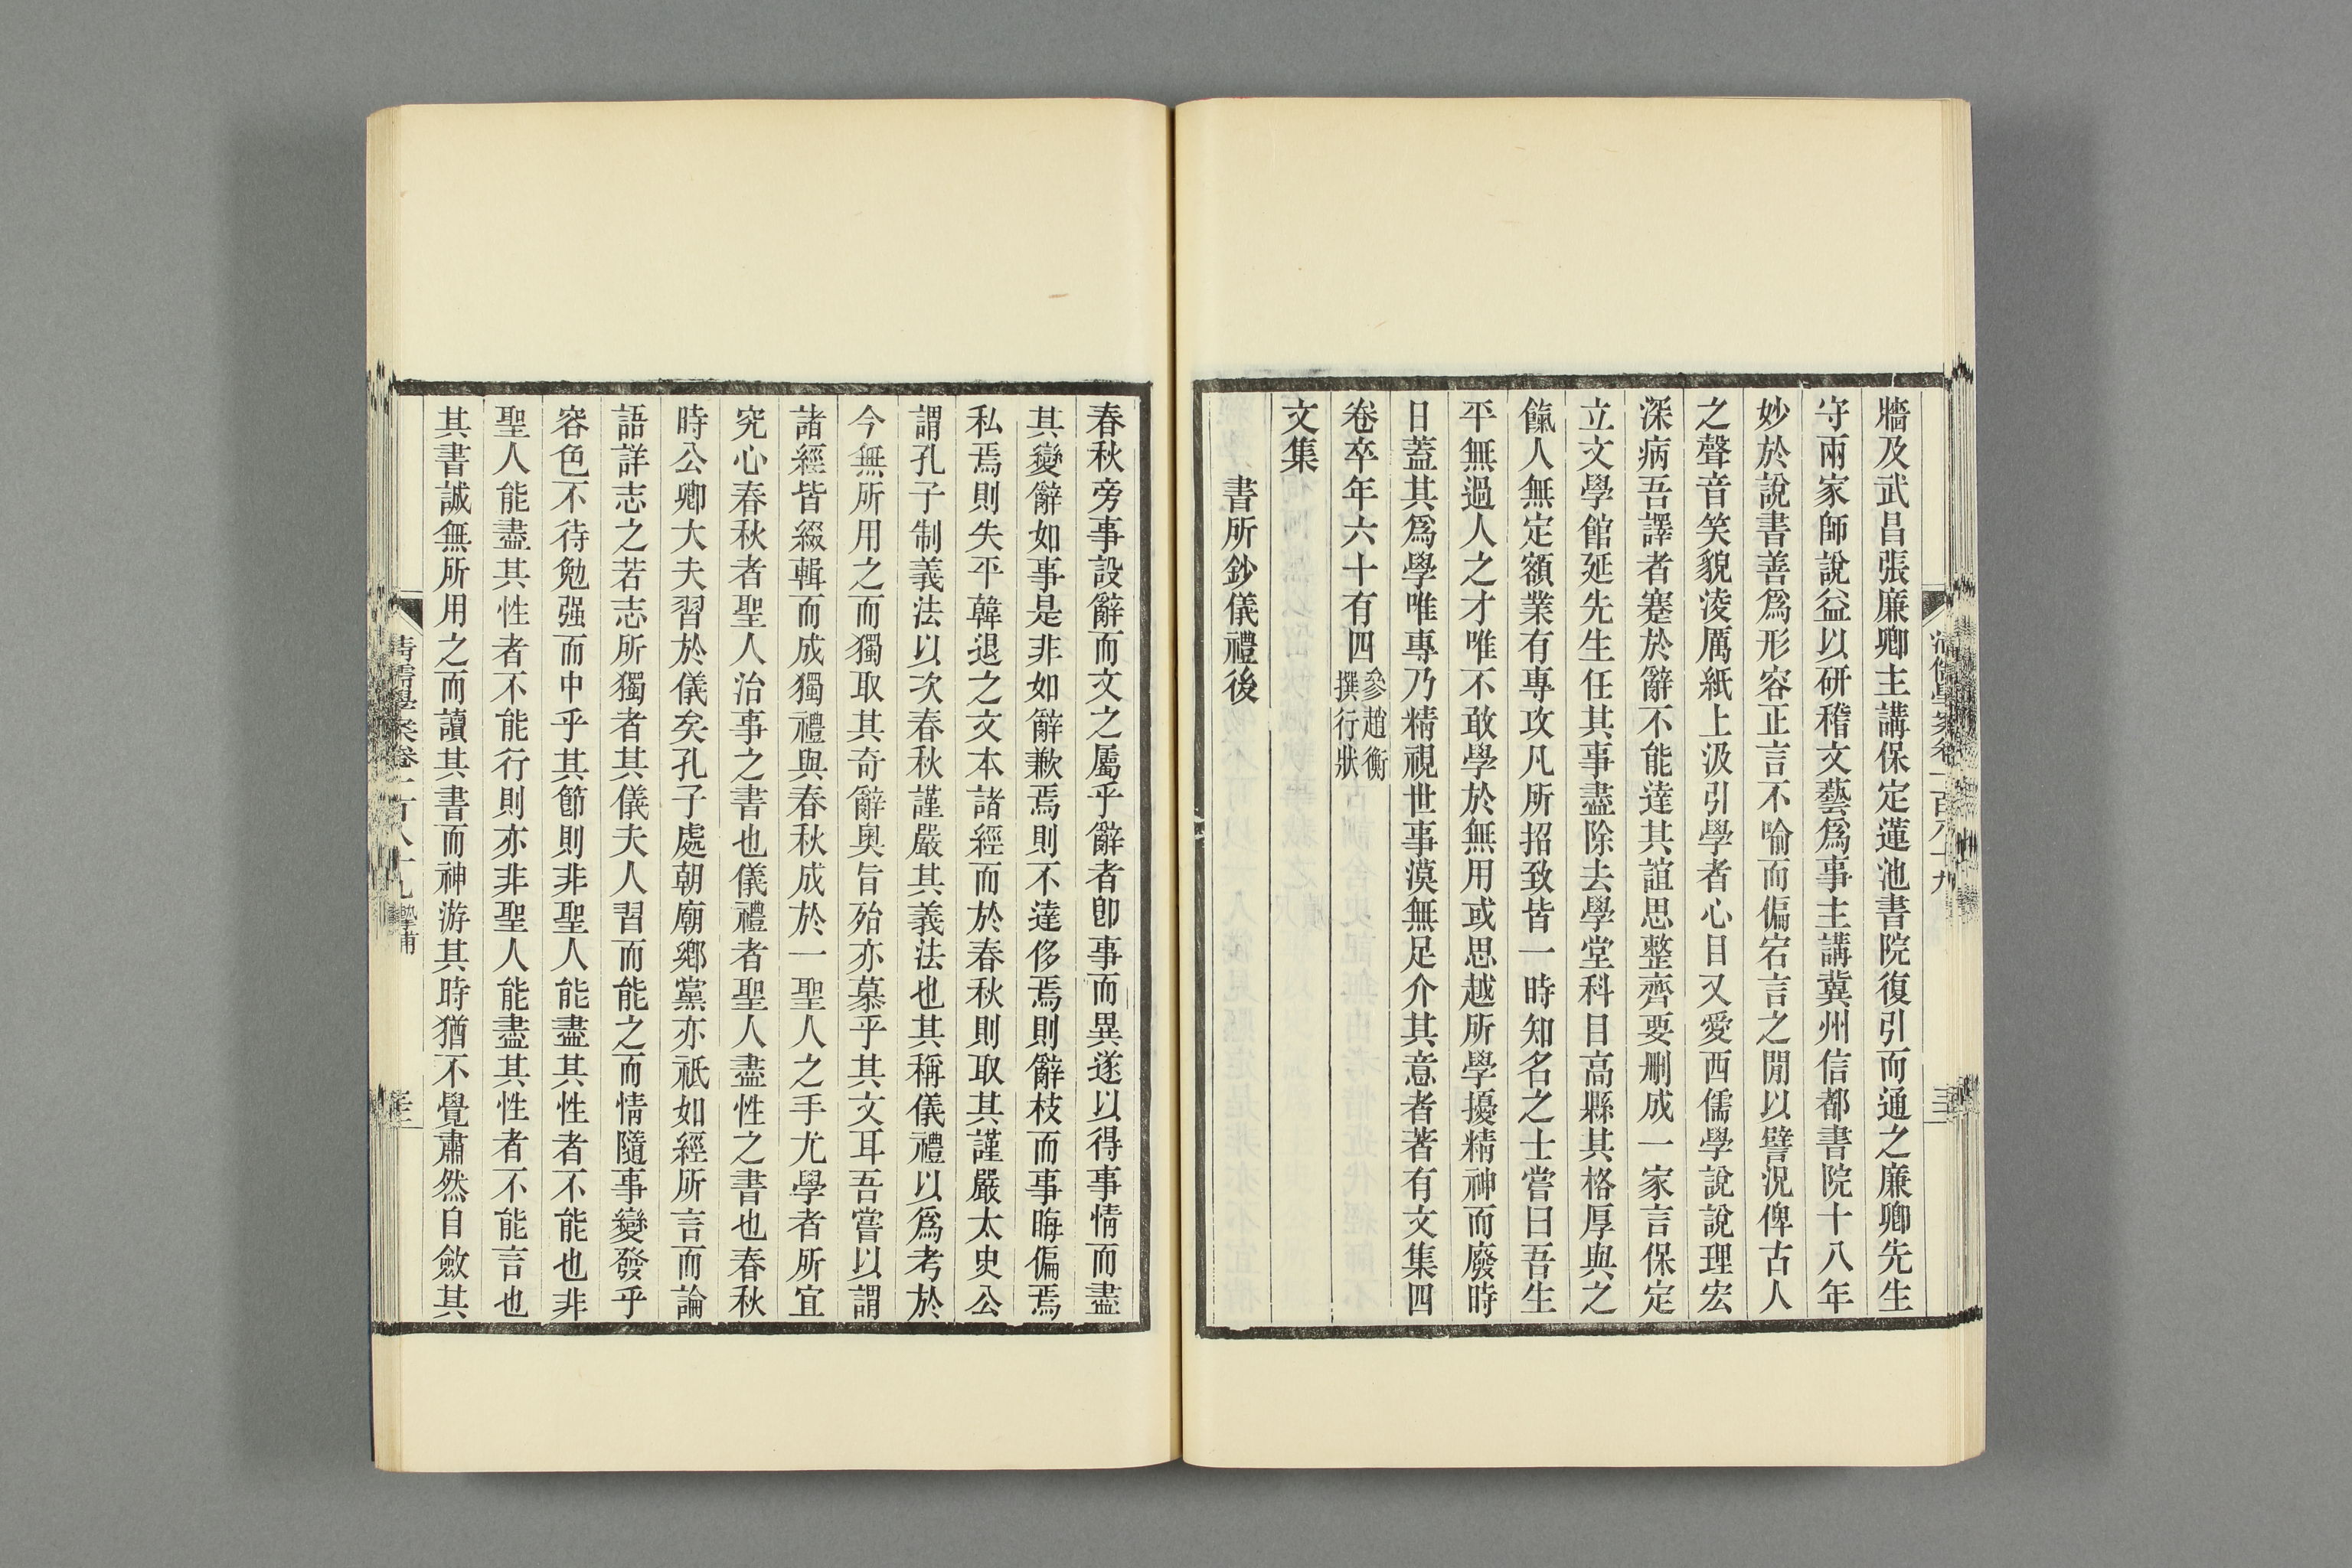 牆及武昌張廉卿主講保定蓮池書院復引而通之廉卿先生
守兩家師說益以研稽文藝爲事主講冀州信都書院十八年
妙於說書善爲形容正言不喻而偏宕言之閒以譬況俾古人
之聲音笑貌淩厲紙上汲引學者心目又愛西儒學說說理宏
深病吾譯者蹇於辭不能達其誼思整齊要刪成一家言保定
立文學館延先生任其事盡除去學堂科目高縣其格厚與之
餼人無定額業有專攻凡所招致皆一時知名之士嘗曰吾生
平無過人之才唯不敢學於無用或思越所學擾精神而廢時
日蓋其爲學唯專乃精視世事漠無足介其意者著有文集四
卷卒年六十有四參趙衡撰行狀
文集
書所鈔儀禮後
春秋旁事設辭而文之屬乎辭者卽事而異遂以得事情而盡
其變辭如事是非如辭歉焉則不達侈焉則辭枝而事晦偏焉
私焉則失平韓退之文本諸經而於春秋則取其謹嚴太史公
謂孔子制義法以次春秋謹嚴其義法也其稱儀禮以爲考於
今無所用之而獨取其奇辭奧旨殆亦慕乎其文耳吾嘗以謂
諸經皆綴輯而成獨禮與春秋成於一聖人之手尤學者所宜
究心春秋者聖人治事之書也儀禮者聖人盡性之書也春秋
時公卿大夫習於儀矣孔子處朝廟鄉黨亦祇如經所言而論
語詳志之若志所獨者其儀夫人習而能之而情隨事變發乎
容色不待勉强而中乎其節則非聖人能盡其性者不能也非
聖人能盡其性者不能行則亦非聖人能盡其性者不能言也
其書誠無所用之而讀其書而神游其時猶不覺肅然自斂其
清儒學案卷一百八十九